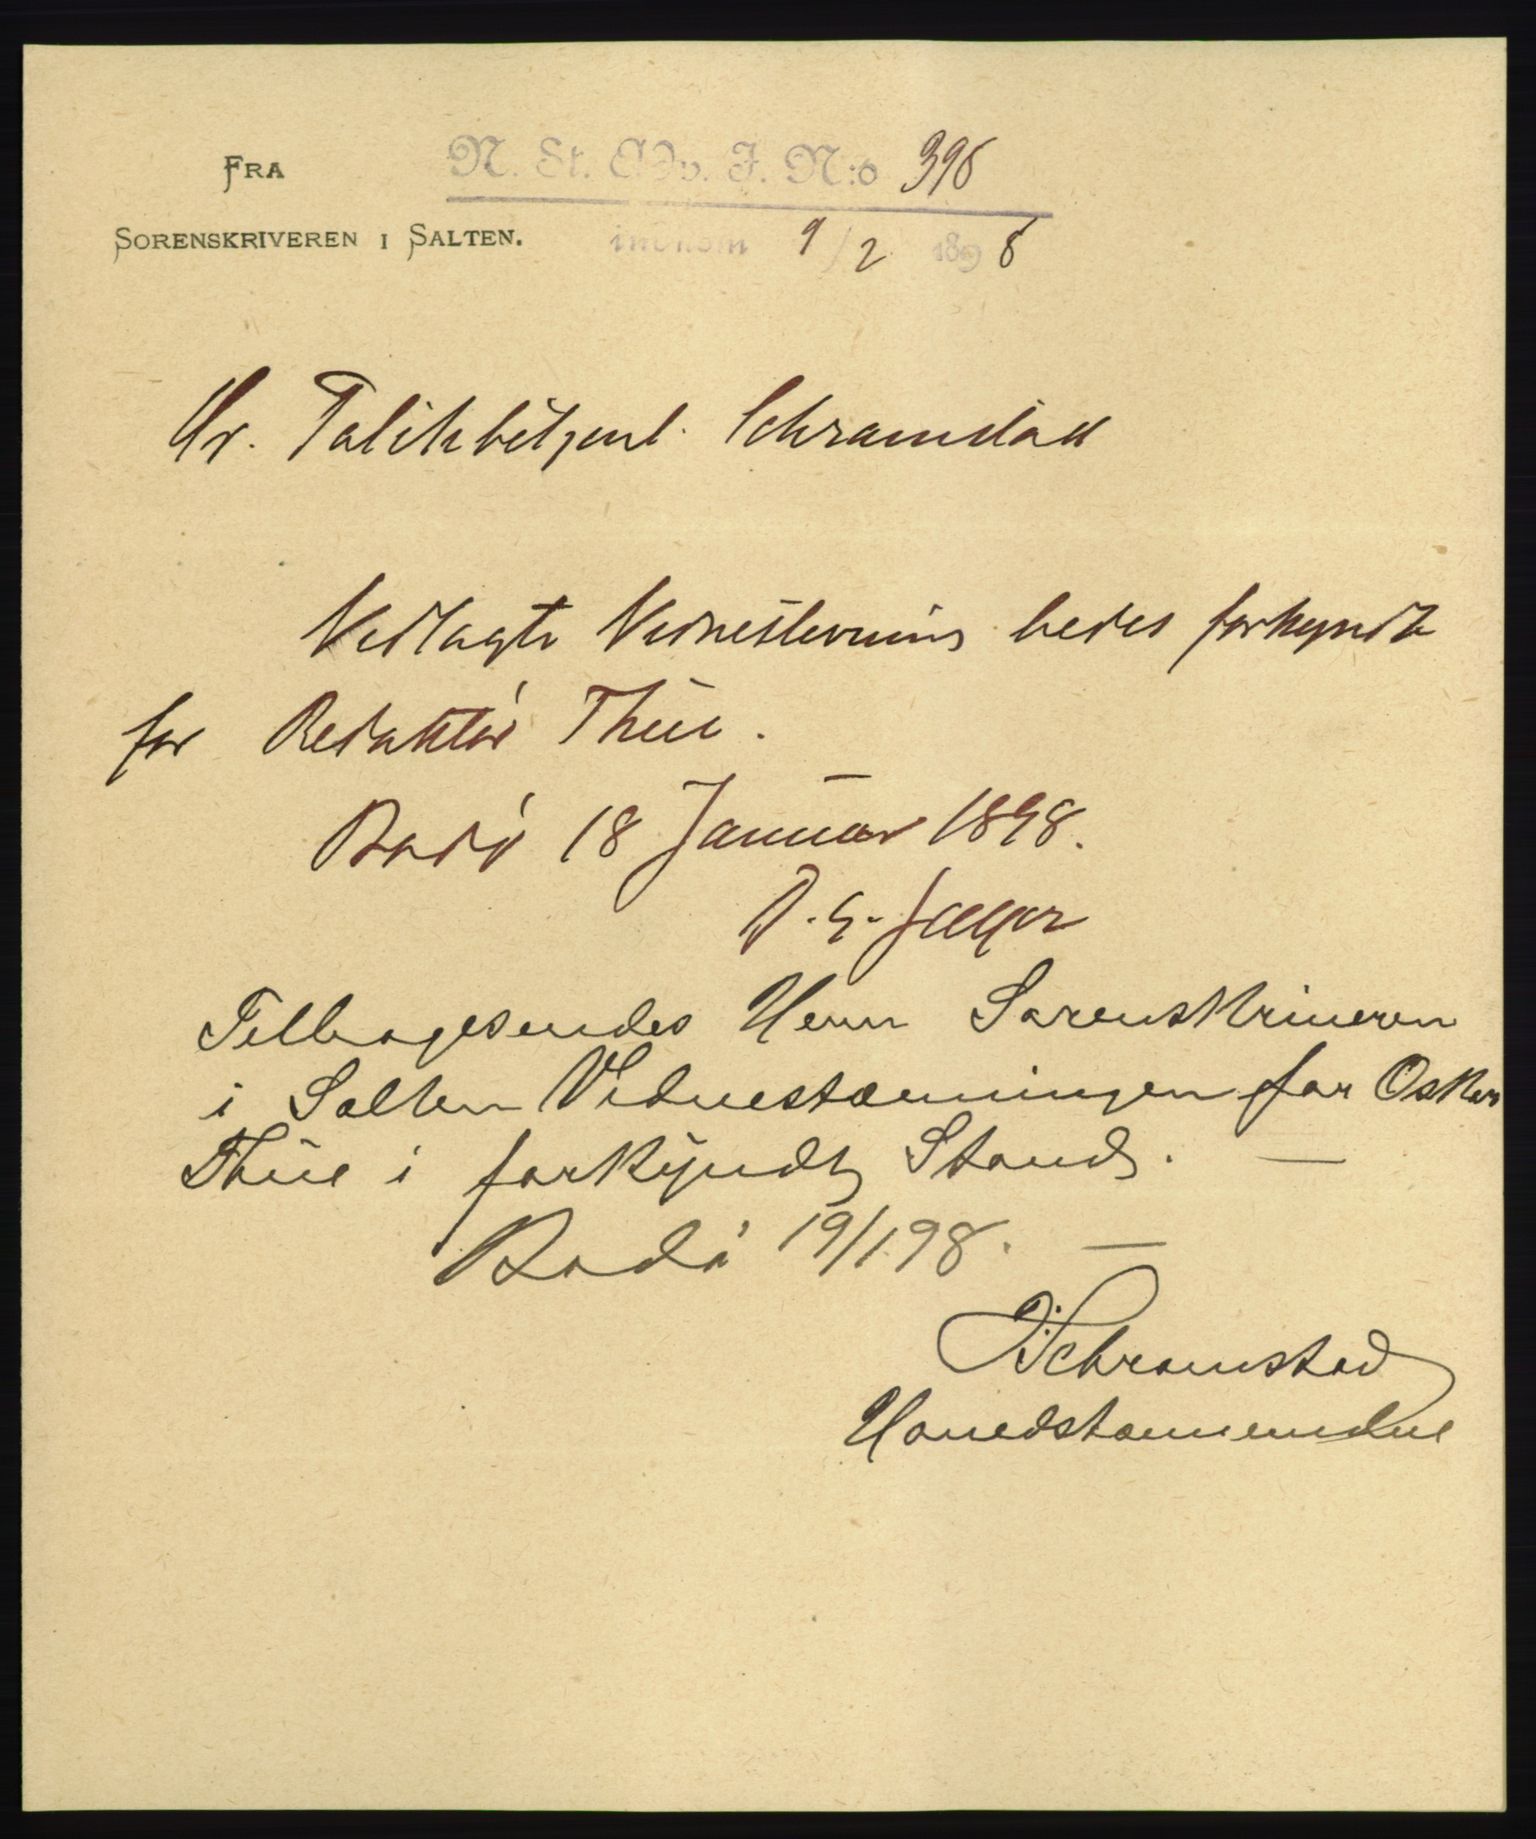 FRA
SORENSKRIVEREN I SALTEN.
N. St. Adv. J. N:o 396
indkom 9/2 1898
Hr. Politibetjent Schramstad
Vedlagte Vidnestevning bedes forkyndt
for Redaktør Thue.
Bodø 18 Januar 1898.
Jæger
Tilbagesendes Herr Sorenskriveren
i Salten Vidnestævningen for Oskar
Thue i forkyndt Stand. —
Bodø 19/1 98. —
Schramstad
Hovedstævnevidne